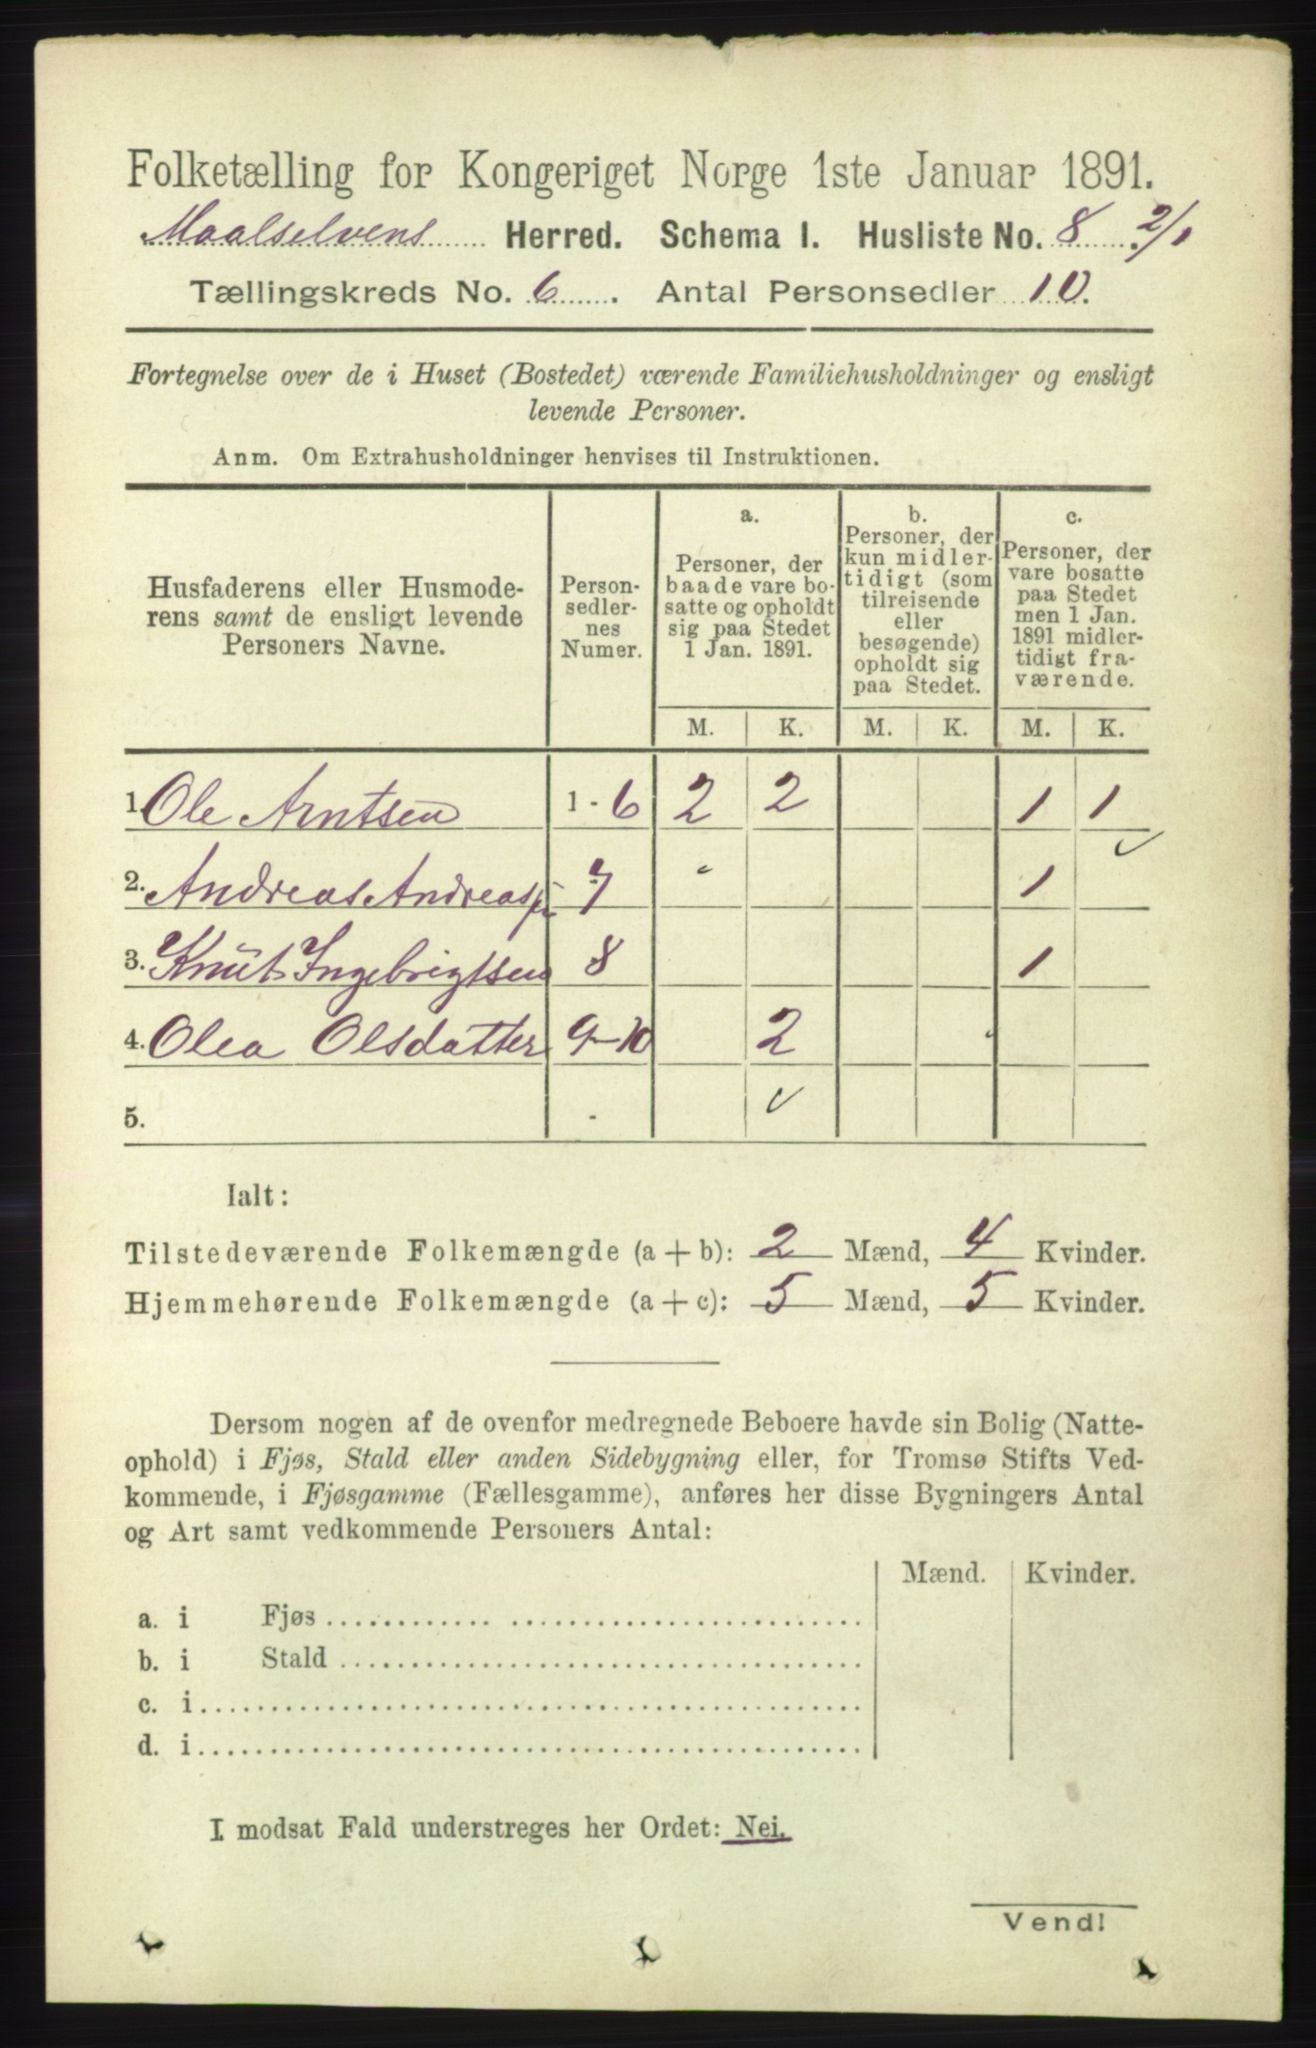 Folketælling for Kongeriget Norge 1ste Januar 1891.
Maalselvens Herred. Schema I. Husliste No. 8. 2/1
Tællingskreds No. 6. Antal Personsedler 10.
Fortegnelse over de i Huset (Bostedet) værende Familiehusholdninger og ensligt
levende Personer.
Anm. Om Extrahusholdninger henvises til Instruktionen.
Husfaderens eller Husmode-
rens samt de ensligt levende
Personers Navne.
Person-
sedler-
nes
Numer.
a.
Personer, der
baade vare bo-
satte og opholdt
sig paa Stedet
1 Jan. 1891.
b.
Personer, der
kun midler-
tidigt (som
tilreisende
eller
besøgende)
opholdt sig
paa Stedet.
c.
Personer, der
vare bosatte
paa Stedet
men 1 Jan.
1891 midler-
tidigt fra-
værende.
M. K. M. K. M. K.
1. Ole Arntsen 1 - 6 2 2 1 1
2. Andreas Andreass 7 1
3. Knut Ingebrigtsen 8 1
4. Olea Olsdatter 9-10 2
5. -
Ialt:
Tilstedeværende Folkemængde (a + b): 2 Mænd, 4 Kvinder.
Hjemmehørende Folkemængde (a + c): 5 Mænd, 5 Kvinder.
Dersom nogen af de ovenfor medregnede Beboere havde sin Bolig (Natte-
ophold) i Fjøs, Stald eller anden Sidebygning eller, for Tromsø Stifts Ved-
kommende, i Fjøsgamme (Fællesgamme), anføres her disse Bygningers Antal
og Art samt vedkommende Personers Antal:
Mænd. Kvinder.
a. i Fjøs
b. i Stald
c. i
d. i
I modsat Fald understreges her Ordet: Nei.
Vend!